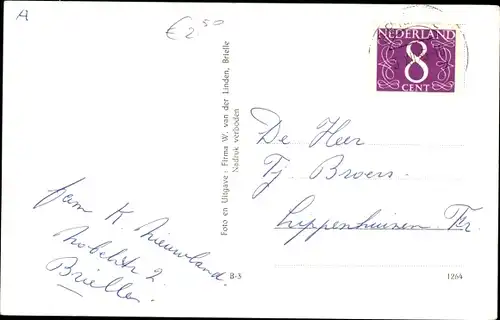 A
€ 2,50
NEDERLAND
8
CENT
Foto en Uitgave: Firma W. van der Linden, Brielle
Nadruk verboden
De Heer
Tj Broers.
Lippenhuizen Fr.
fam K. Nieuwland.
Nobelstr 2.
Brielle.
B-3
1264